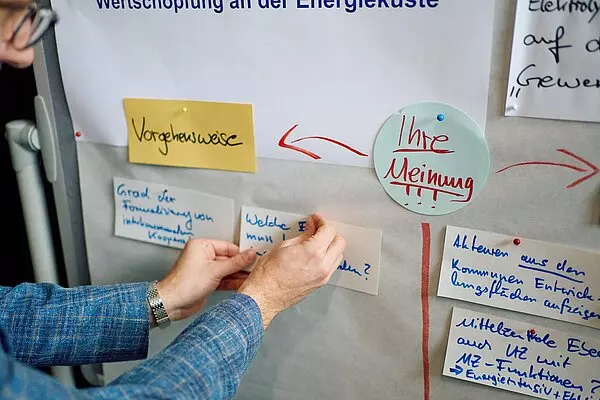 Wertschöpfung an der Energieküste
Elektroly
auf d
"Gewer
Vorgehensweise
Ihre
Meinung
!!!
Grad der
Formalisierung von
interkommunalen
Kooperat
Welche E
muss
den?
Akteuren aus den
Kommunen Entwick-
lungsflächen aufzeigen
Mittelzentrale Ebe
auds UZ mit
MZ-Funktionen?
→ Energieintensiv + Ebl